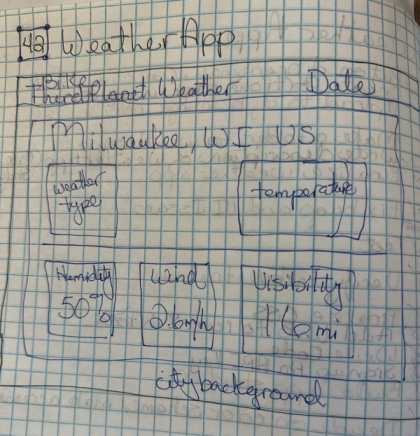 42 Weather App
Bike
Third Planet Weather Date
Milwaukee, WI US
Weather
type
temperature
Humidity
50%
Wind
2.6m/h
Visibility
16 mi
city background